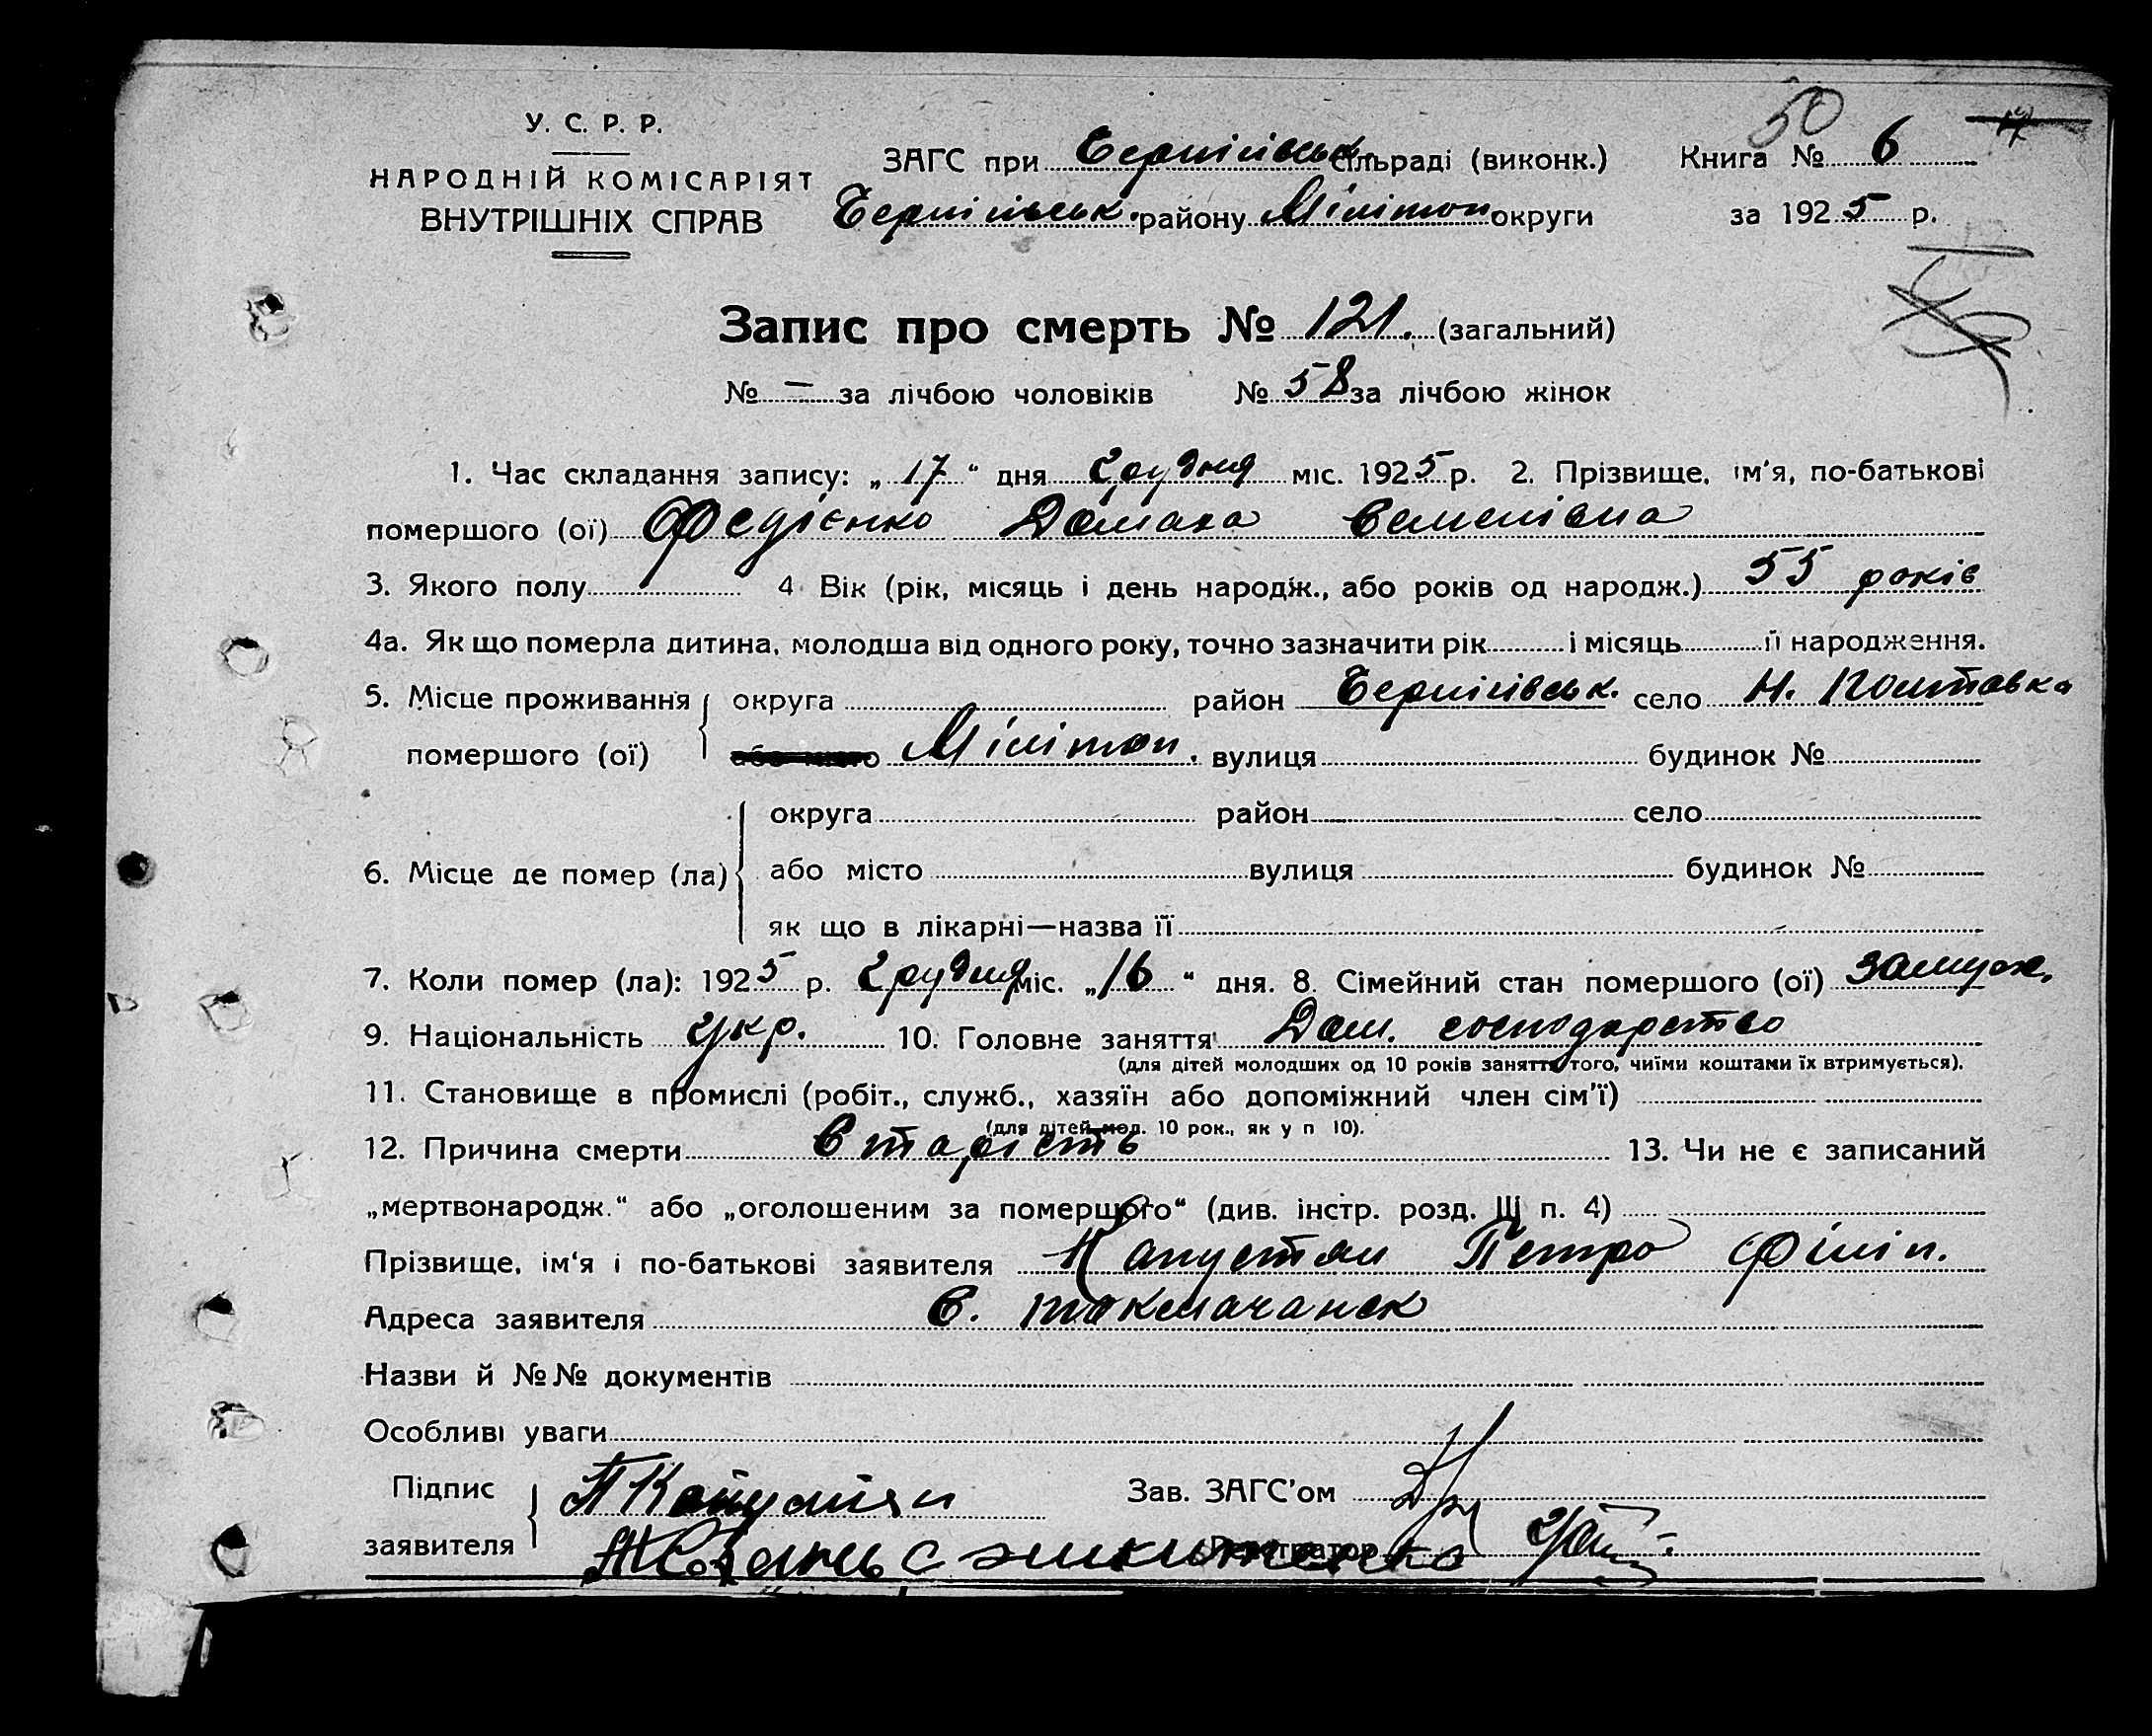 У. С. Р. Р.
НАРОДНІЙ КОМІСАРІЯТ
ВНУТРІШНІХ СПРАВ
50
ЗАГС при Чернігівськ. сільраді (виконк.) Книга № 6
Чернігівськ. району Мілітоп. округи за 1925 р.
Запис про смерть № 121. (загальний)
№ – за лічбою чоловіків № 58 за лічбою жінок
1. Час складання запису: „17“ дня Грудня міс. 1925 р. 2. Прізвище, ім'я, по-батькові
помершого (ої) Федієнко Домаха Семенівна
3. Якого полу 4 Вік (рік, місяць і день народж., або років од народж.) 55 років
4а. Як що померла дитина, молодша від одного року, точно зазначити рік і місяць її народження.
5. Місце проживання округа район Чернігівськ. село Н. Полтавка
помершого (ої) або місто Мілітоп. вулиця будинок №
округа район село
6. Місце де помер (ла) або місто вулиця будинок №
як що в лікарні—назва її
7. Коли помер (ла): 1925 р. Грудня міс. „16“ дня. 8. Сімейний стан помершого (ої) замуж.
9. Національність Укр. 10. Головне заняття Дом. господарство
(для дітей молодших од 10 років заняття того, чиїми коштами їх втримується).
11. Становище в промислі (робіт., служб., хазяїн або допоміжний член сім'ї)
(для дітей мол. 10 рок., як у п 10).
12. Причина смерти Старість 13. Чи не є записаний
„мертвонародж.“ або „оголошеним за помершого“ (див. інстр. розд. Ш п. 4)
Прізвище, ім'я і по-батькові заявителя Капустян Петро Філіп.
Адреса заявителя С. Токмачанск
Назви й №№ документів
Особливі уваги
Підпис П Капустян Зав. ЗАГС'ом
заявителя Регистратор